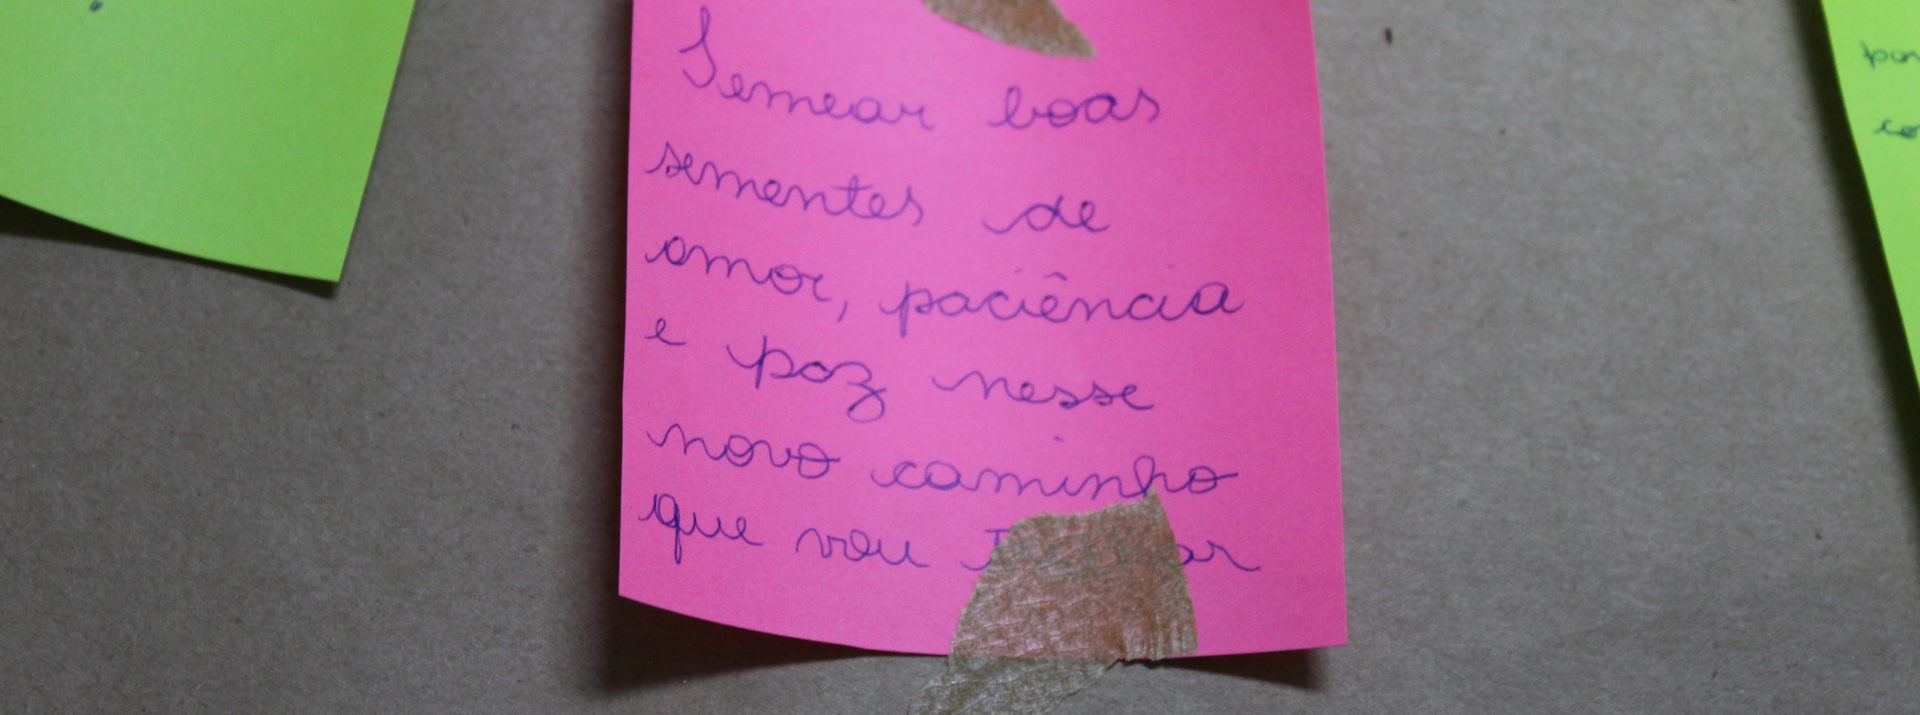 Semear boas
sementes de
amor, paciência
e paz nesse
novo caminho
que vou